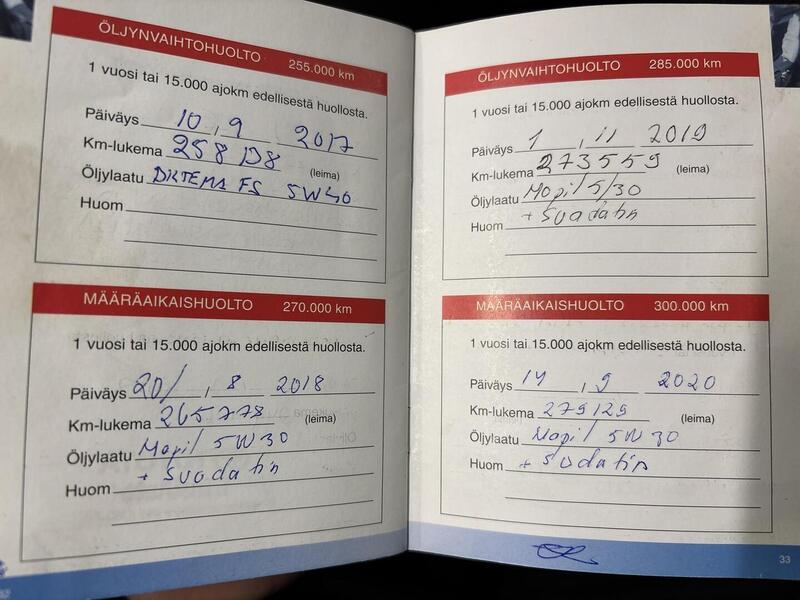 ÖLJYNVAIHTOHUOLTO 255.000 km
1 vuosi tai 15.000 ajokm edellisestä huollosta.
Päiväys 10 , 9 2017
Km-lukema
(leima)
Öljylaatu FS 5W40
Huom
MÄÄRÄAIKAISHUOLTO 270.000 km
1 vuosi tai 15.000 ajokm edellisestä huollosta.
Päiväys 20/ , 8 2018
Km-lukema 265778 (leima)
Öljylaatu Mopil 5W30
+ suodatin
Huom
ÖLJYNVAIHTOHUOLTO 285.000 km
1 vuosi tai 15.000 ajokm edellisestä huollosta.
Päiväys 1 , 11 2019
Km-lukema 273559 (leima)
Öljylaatu Mopil 5/30
Huom + Suodatin
MÄÄRÄAIKAISHUOLTO 300.000 km
1 vuosi tai 15.000 ajokm edellisestä huollosta.
Päiväys 14 , 9 2020
Km-lukema 279129 (leima)
Öljylaatu Mopil 5W30
Huom + sudatin
33